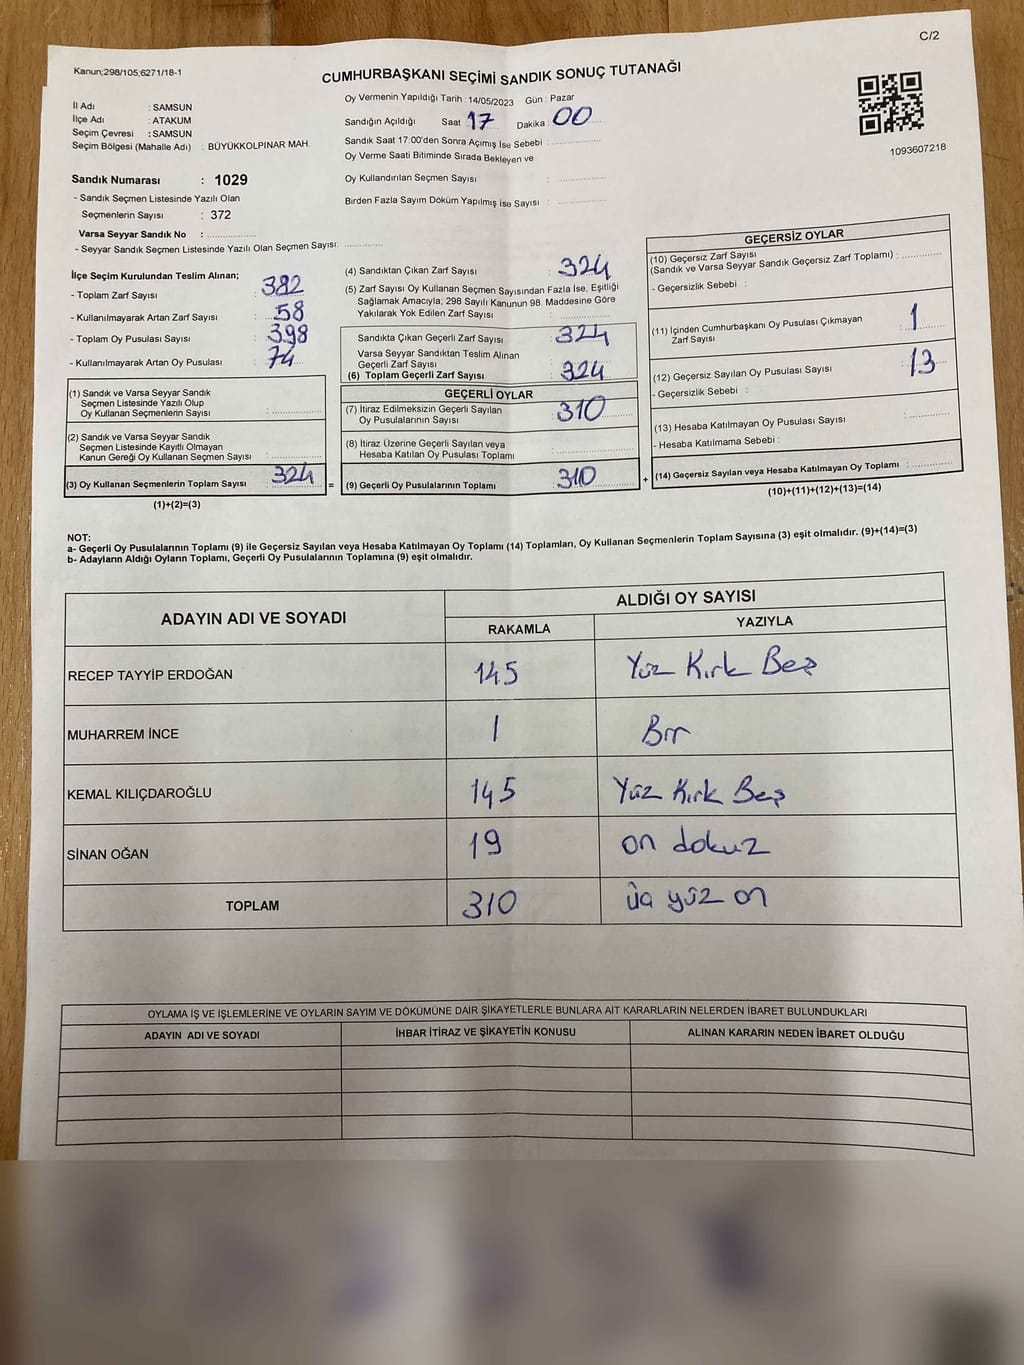 C/2
Kanun;298/105;6271/18-1
CUMHURBAŞKANI SEÇİMİ SANDIK SONUÇ TUTANAĞI
İl Adı : SAMSUN
İlçe Adı : ATAKUM
Seçim Çevresi : SAMSUN
Seçim Bölgesi (Mahalle Adı) : BÜYÜKKOLPINAR MAH.
Sandık Numarası : 1029
- Sandık Seçmen Listesinde Yazılı Olan
Seçmenlerin Sayısı : 372
Varsa Seyyar Sandık No :
- Seyyar Sandık Seçmen Listesinde Yazılı Olan Seçmen Sayısı:
Oy Vermenin Yapıldığı Tarih : 14/05/2023 Gün : Pazar
Sandığın Açıldığı Saat 17 Dakika : 00
Sandık Saat 17:00'den Sonra Açımış İse Sebebi :
Oy Verme Saati Bitiminde Sırada Bekleyen ve
Oy Kullandırılan Seçmen Sayısı :
Birden Fazla Sayım Döküm Yapılmış İse Sayısı :
1093607218
İlçe Seçim Kurulundan Teslim Alınan;
- Toplam Zarf Sayısı : 382
- Kullanılmayarak Artan Zarf Sayısı : 58
- Toplam Oy Pusulası Sayısı : 398
- Kullanılmayarak Artan Oy Pusulası : 74
(1) Sandık ve Varsa Seyyar Sandık
Seçmen Listesinde Yazılı Olup
Oy Kullanan Seçmenlerin Sayısı :
(2) Sandık ve Varsa Seyyar Sandık
Seçmen Listesinde Kayıtlı Olmayan
Kanun Gereği Oy Kullanan Seçmen Sayısı :
(3) Oy Kullanan Seçmenlerin Toplam Sayısı : 324 =
(1)+(2)=(3)
(4) Sandıktan Çıkan Zarf Sayısı : 324
(5) Zarf Sayısı Oy Kullanan Seçmen Sayısından Fazla İse, Eşitliği
Sağlamak Amacıyla; 298 Sayılı Kanunun 98. Maddesine Göre
Yakılarak Yok Edilen Zarf Sayısı :
Sandıkta Çıkan Geçerli Zarf Sayısı : 324
Varsa Seyyar Sandıktan Teslim Alınan
Geçerli Zarf Sayısı :
(6) Toplam Geçerli Zarf Sayısı : 324
GEÇERLİ OYLAR
(7) İtiraz Edilmeksizin Geçerli Sayılan
Oy Pusulalarının Sayısı : 310
(8) İtiraz Üzerine Geçerli Sayılan veya
Hesaba Katılan Oy Pusulası Toplamı :
(9) Geçerli Oy Pusulalarının Toplamı : 310 +
GEÇERSİZ OYLAR
(10) Geçersiz Zarf Sayısı
(Sandık ve Varsa Seyyar Sandık Geçersiz Zarf Toplamı) :
- Geçersizlik Sebebi :
(11) İçinden Cumhurbaşkanı Oy Pusulası Çıkmayan
Zarf Sayısı : 1
(12) Geçersiz Sayılan Oy Pusulası Sayısı : 13
- Geçersizlik Sebebi :
(13) Hesaba Katılmayan Oy Pusulası Sayısı :
- Hesaba Katılmama Sebebi :
(14) Geçersiz Sayılan veya Hesaba Katılmayan Oy Toplamı :
(10)+(11)+(12)+(13)=(14)
NOT:
a- Geçerli Oy Pusulalarının Toplamı (9) ile Geçersiz Sayılan veya Hesaba Katılmayan Oy Toplamı (14) Toplamları, Oy Kullanan Seçmenlerin Toplam Sayısına (3) eşit olmalıdır. (9)+(14)=(3)
b- Adayların Aldığı Oyların Toplamı, Geçerli Oy Pusulalarının Toplamına (9) eşit olmalıdır.
ADAYIN ADI VE SOYADI ALDIĞI OY SAYISI
RAKAMLA YAZIYLA
RECEP TAYYİP ERDOĞAN 145 Yüz Kırk Beş
MUHARREM İNCE 1 Bir
KEMAL KILIÇDAROĞLU 145 Yüz Kırk Beş
SİNAN OĞAN 19 on dokuz
TOPLAM 310 üç yüz on
OYLAMA İŞ VE İŞLEMLERİNE VE OYLARIN SAYIM VE DÖKÜMÜNE DAİR ŞİKAYETLERLE BUNLARA AİT KARARLARIN NELERDEN İBARET BULUNDUKLARI
ADAYIN ADI VE SOYADI İHBAR İTİRAZ VE ŞİKAYETİN KONUSU ALINAN KARARIN NEDEN İBARET OLDUĞU